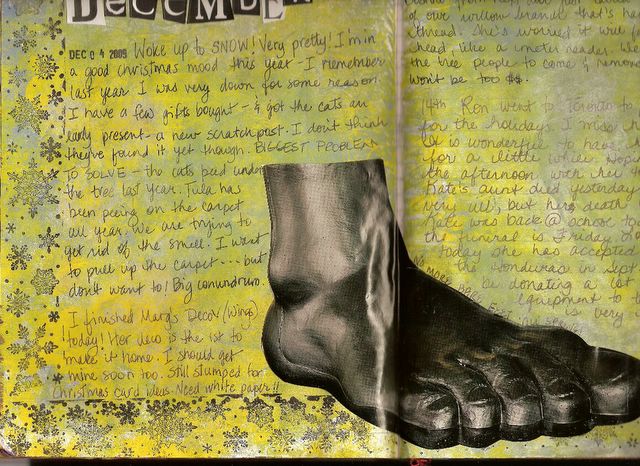 DECEMBE
DEC 04 2009 Woke up to SNOW! Very pretty! I'm in
a good christmas mood this year - I remember
last year I was very down for some reason.
I have a few gifts bought - & got the cats an
early present - a new scratchpost. I don't think
they've found it yet though. BIGGEST PROBLEM
TO SOLVE - the cats peed under
the tree last year. Tula has
been peeing on the carpet
all year. We are trying to
get rid of the smell. I want
to pull up the carpet... but
don't want to! Big conundrum.
I finished Marg's Deco (Wings)
today! Her deco is the 1st to
make it home. I should get
mine soon too. Still stumped for
Christmas card ideas. Need white paper!!
of our willow branch that's
thread. She's worried it will
head, like a meter reader
the tree people to come & remove
won't be too $$.
14th Ron went to Toronto
for the holiday. I miss
is wonderful to have
for a little while. Hope
the afternoon with her
Kate's aunt died yesterday
very ill, but her death
Kate was back @ school
the funeral is Friday
today she has accepted
the Honduras in Sept
be donating a cat
equipment to
is very